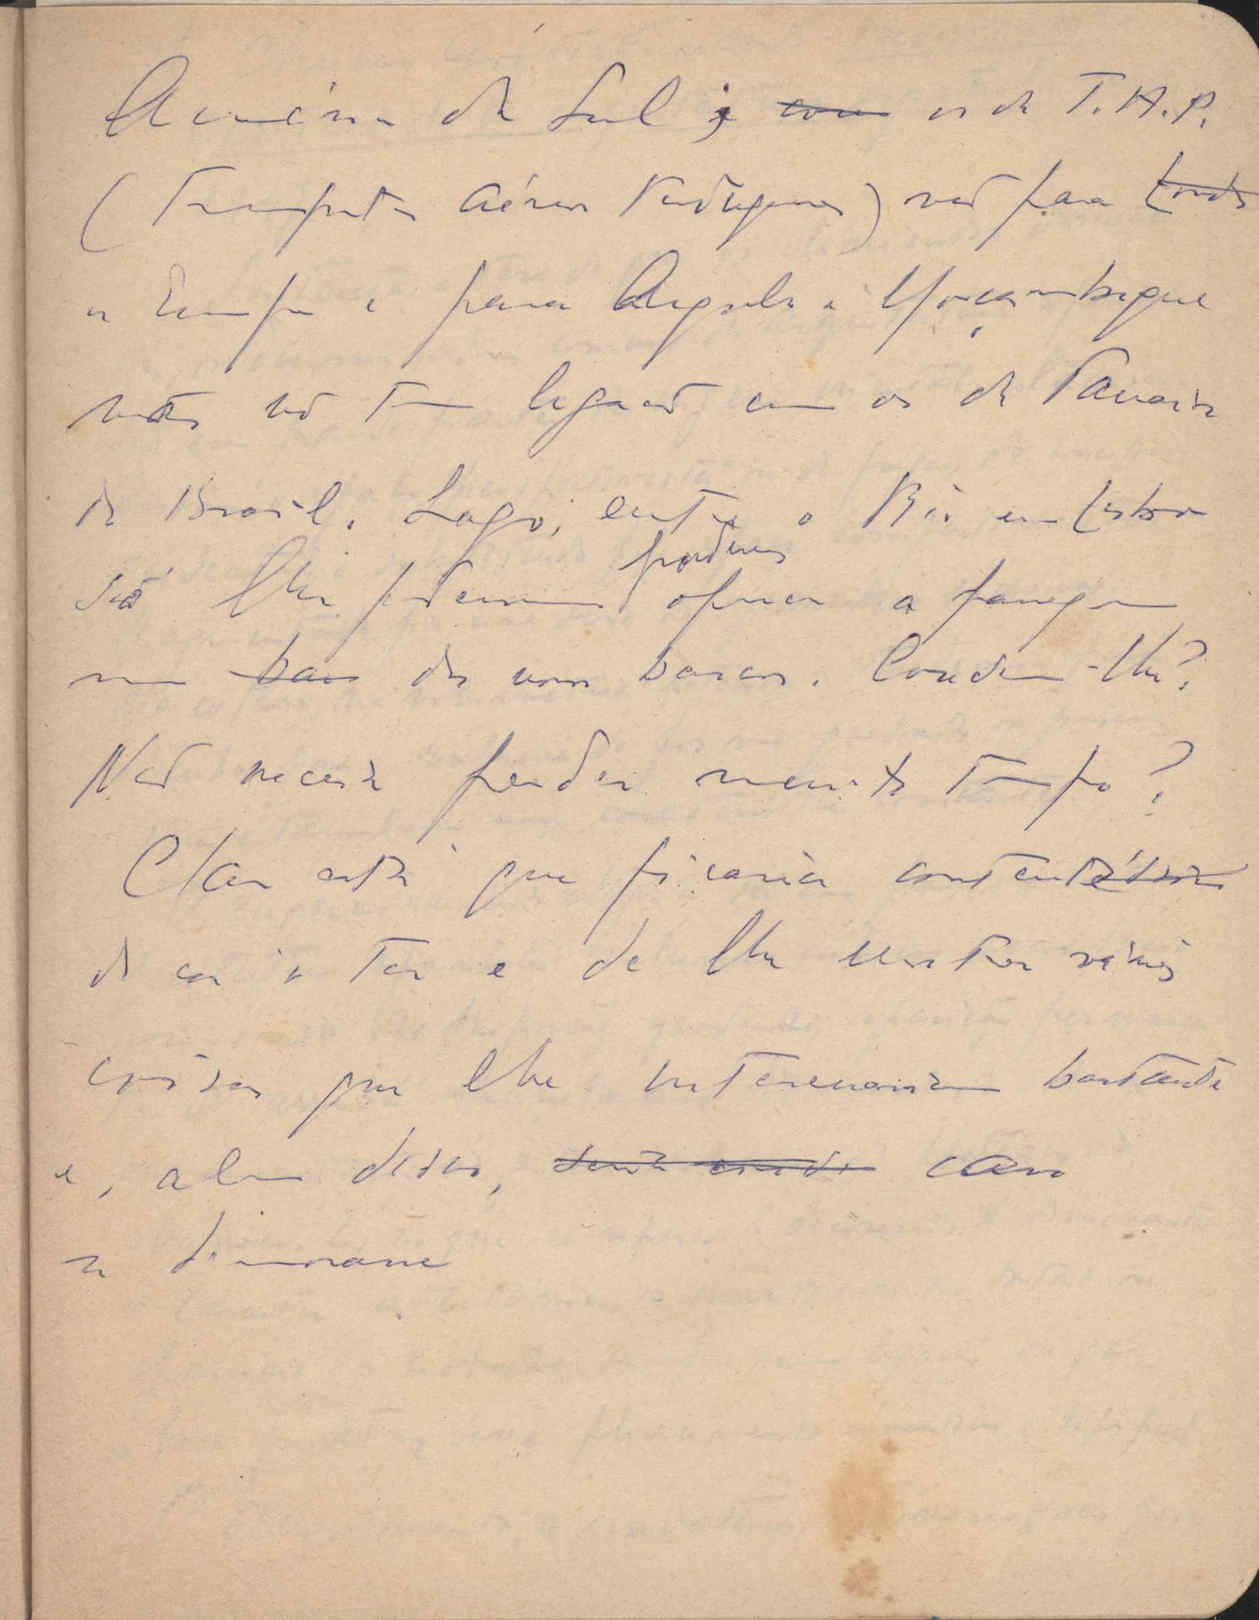 América do Sul; com os da T.A.P.
(Transportes Aéreos Portugueses) vão para Londres
a Europa e para Angola e Moçambique
mas não tem ligação com os da Panair
do Brasil. Logo, entre o Rio e Lisboa
só lhe poderemos oferecer a passagem
podemos
num bar dos nossos barcos. Convém-lhe?
Não receia perder muito tempo?
Claro está que ficaria contentíssimo
de cá o ter e de lhe mostrar várias
coisas que lhe interessariam bastante
e, além disso, caso
se demorasse